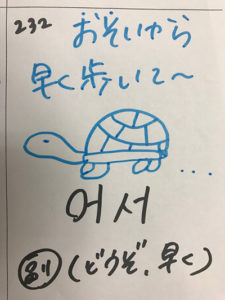 232 おそいから
早く歩いて〜
...
어서
副 (どうぞ、早く)